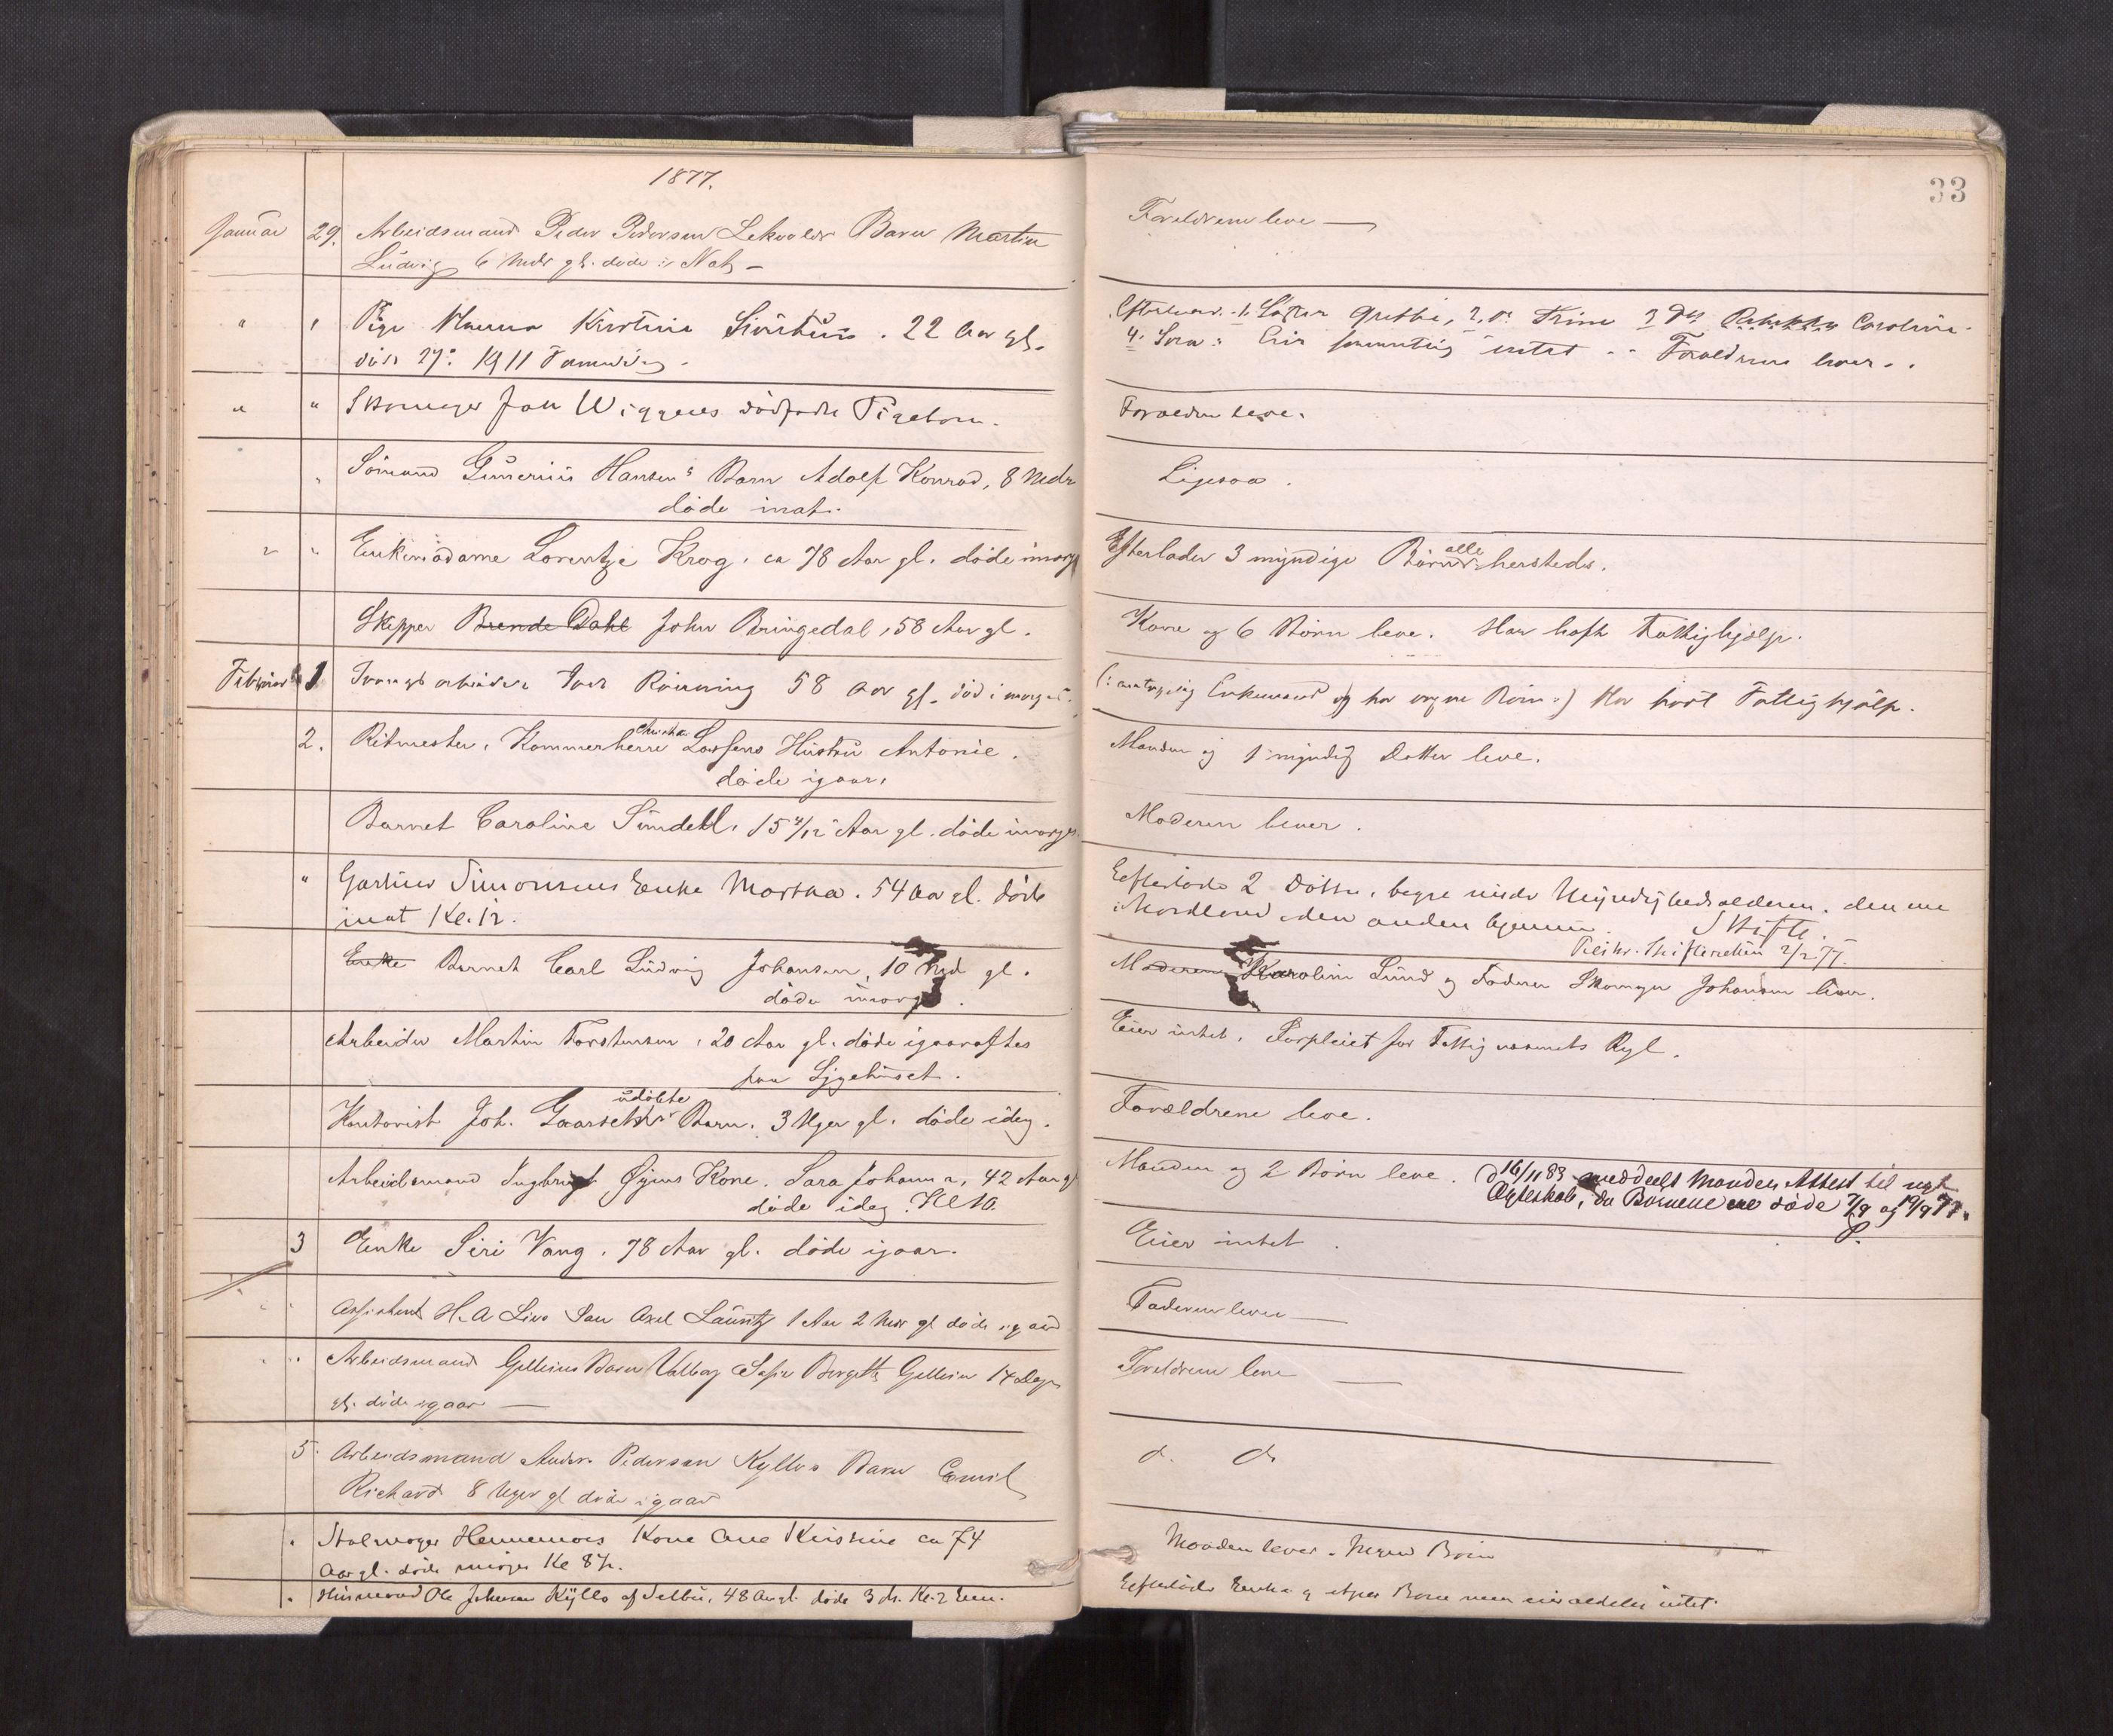 1877.
Januar 29. Arbeidsmand Peder Pedersen Lekvolds Barn Martin
Ludvig 6 Mdr gl. døde i Nat –
" " Pige Hanna Kirstine . 22 Aar gl.
død 27.
" " Skomager Joh Wiggens dødfødte Pigebarn.
" Sømand Gunerius Hansens Barn Adolf Konrad, 8 Mdr
døde inat.
" " Enkemadame Lorentze Krog. ca 78 Aar gl. døde imorg
Skipper Brende Dahl John Bringedal, 58 Aar gl.
Februar 1 Tvangsarbeider Iver Rønning 58 Aar gl. død i morges.
2. Ritmester, Kammerherre Lossens Hustru Antonie.
døde igaar.
Barnet Caroline Sundell. 15 Aar gl. døde imorges.
" Gartner Simonsens Enke Martha. 54 Aar gl. døde
inat Kl. 12.
Enke Barnet Carl Ludvig Johansen, 10 Md gl.
døde imorges.
Arbeider Martin Torstensen, 20 Aar gl. døde igaaraftes
paa Sygehuset.
udøbte
Kontorist Joh. Gaarseths Barn. 3 Uger gl. døde idag.
Arbeidsmand Ingbrigt Øyens Kone. Sara Johanna, 42 Aar gl
døde idag. Kl 10.
3 Enke Siri Vang. 78 Aar gl. døde igaar.
Assistent H. A Lies Søn Axel Lauritz 1 Aar 2 Mdr gl døde igaar
" Arbeidsmand Gelleins Barn Valborg Sofie Bergitte Gellein 14 Dage
gl. døde igaar —
5. Arbeidsmand Anders Pedersen Kyllos Barn Emil
Richard 8 Uger gl døde igaar
" Kone Ane Kirstine ca 74
Aar gl. døde imorges Kl 8½.
" Husmand Ole Johnsen Kyllo af Selbu, 48 Aar gl. døde 3 ds. Kl. 2 Em.
33
Forældrene leve —
Efterlever. 1, Søster Grethe, 2, do Trine 3 do Rebekka Caroline
4. Sara: Eier intet. Forældrene lever..
Forældre leve.
Ligesaa.
alle
Efterlader 3 myndige Børn hersteds.
Kone og 6 Børn leve. Har havt Fattighjælp.
(: Enkemand og har ingen Børn :) Har havt Fattighjælp.
Manden og 1 myndig Datter leve.
Moderen lever.
Efterlod 2 Døttre, begge under Myndighedsalderen, den ene
i Nordland den anden hjemme. Skifte.
Skifteretten 2/2 77.
Moderen Karoline Lund og Faderen Skomager Johansen lever.
Eier intet. Forpleiet for Fattigvæsenets Rgl.
Forældrene leve.
Manden og 2 Børn leve. D 16/11 83 meddeelt Manden Attest til nyt
Ægteskab, da Børnene ere døde 7/9 og 19/9 77.
P.
Eier intet.
Faderen lever —
Forældrene leve —
do. do
Manden lever. Ingen Børn
Efterlod Enke og Børn men eier aldeles intet.